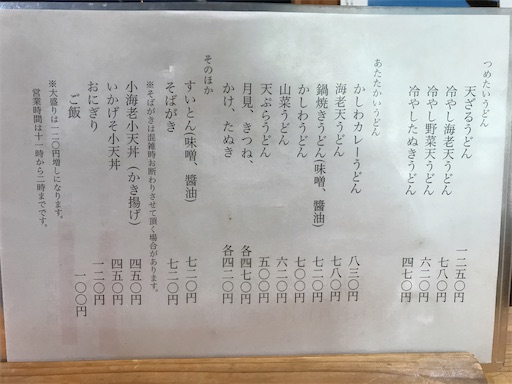 つめたいうどん
天ざるうどん 一二五〇円
冷やし海老天うどん 七八〇円
冷やし野菜天うどん 六二〇円
冷やしたぬきうどん 四七〇円
あたたかいうどん
かしわカレーうどん 八三〇円
海老天うどん 七八〇円
鍋焼きうどん(味噌、醤油) 七二〇円
かしわうどん 七〇〇円
山菜うどん 六二〇円
天ぷらうどん 五〇〇円
月見、きつね、 各四七〇円
かけ、たぬき 各四二〇円
そのほか
すいとん(味噌、醤油) 七二〇円
そばがき 七二〇円
※そばがきは混雑時お断わりさせて頂く場合があります。
小海老小天丼(かき揚げ) 四五〇円
いかげそ小天丼 四五〇円
おにぎり 一二〇円
ご飯 一〇〇円
※大盛りは一二〇円増しになります。
営業時間は十一時から二時までです。